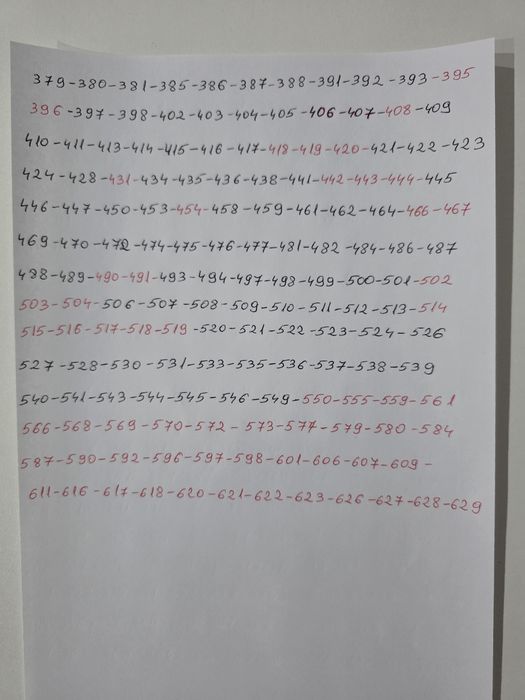 379-380-381-385-386-387-388-391-392-393-395
396-397-398-402-403-404-405-406-407-408-409
410-411-413-414-415-416-417-418-419-420-421-422-423
424-428-431-434-435-436-438-441-442-443-444-445
446-447-450-453-454-458-459-461-462-464-466-467
469-470-472-474-475-476-477-481-482-484-486-487
488-489-490-491-493-494-497-498-499-500-501-502
503-504-506-507-508-509-510-511-512-513-514
515-516-517-518-519-520-521-522-523-524-526
527-528-530-531-533-535-536-537-538-539
540-541-543-544-545-546-549-550-555-559-561
566-568-569-570-572-573-577-579-580-584
587-590-592-596-597-598-601-606-607-609-
611-616-617-618-620-621-622-623-626-627-628-629